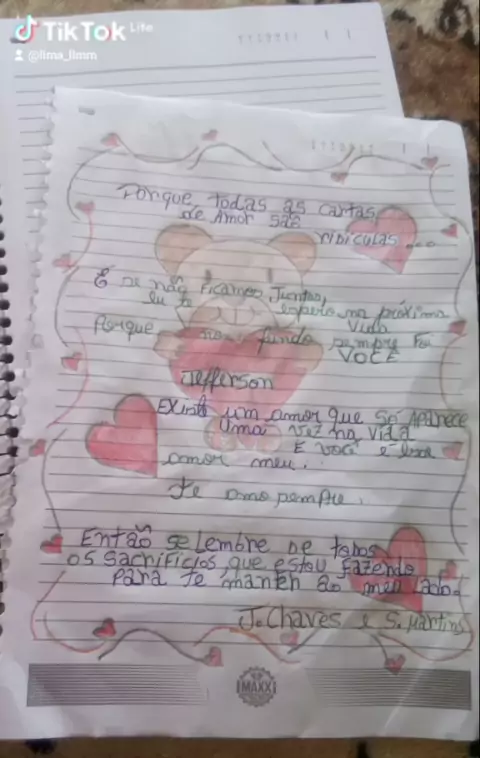 TikTok Lite
@lima_llmm
Porque, todas as cartas
de Amor são
ridículas....
E se não ficamos Juntos,
eu te espero na próxima
vida
Porque no fundo sempre foi
VOCÊ
Jefferson
Existe um amor que só Aparece
uma vez na vida
E você e esse
amor meu...
te amo sempre.
Então se lembre de todos
os sacrifícios que estou fazendo
para te manter ao meu lado.
J. Chaves e S. Martins
MAXX